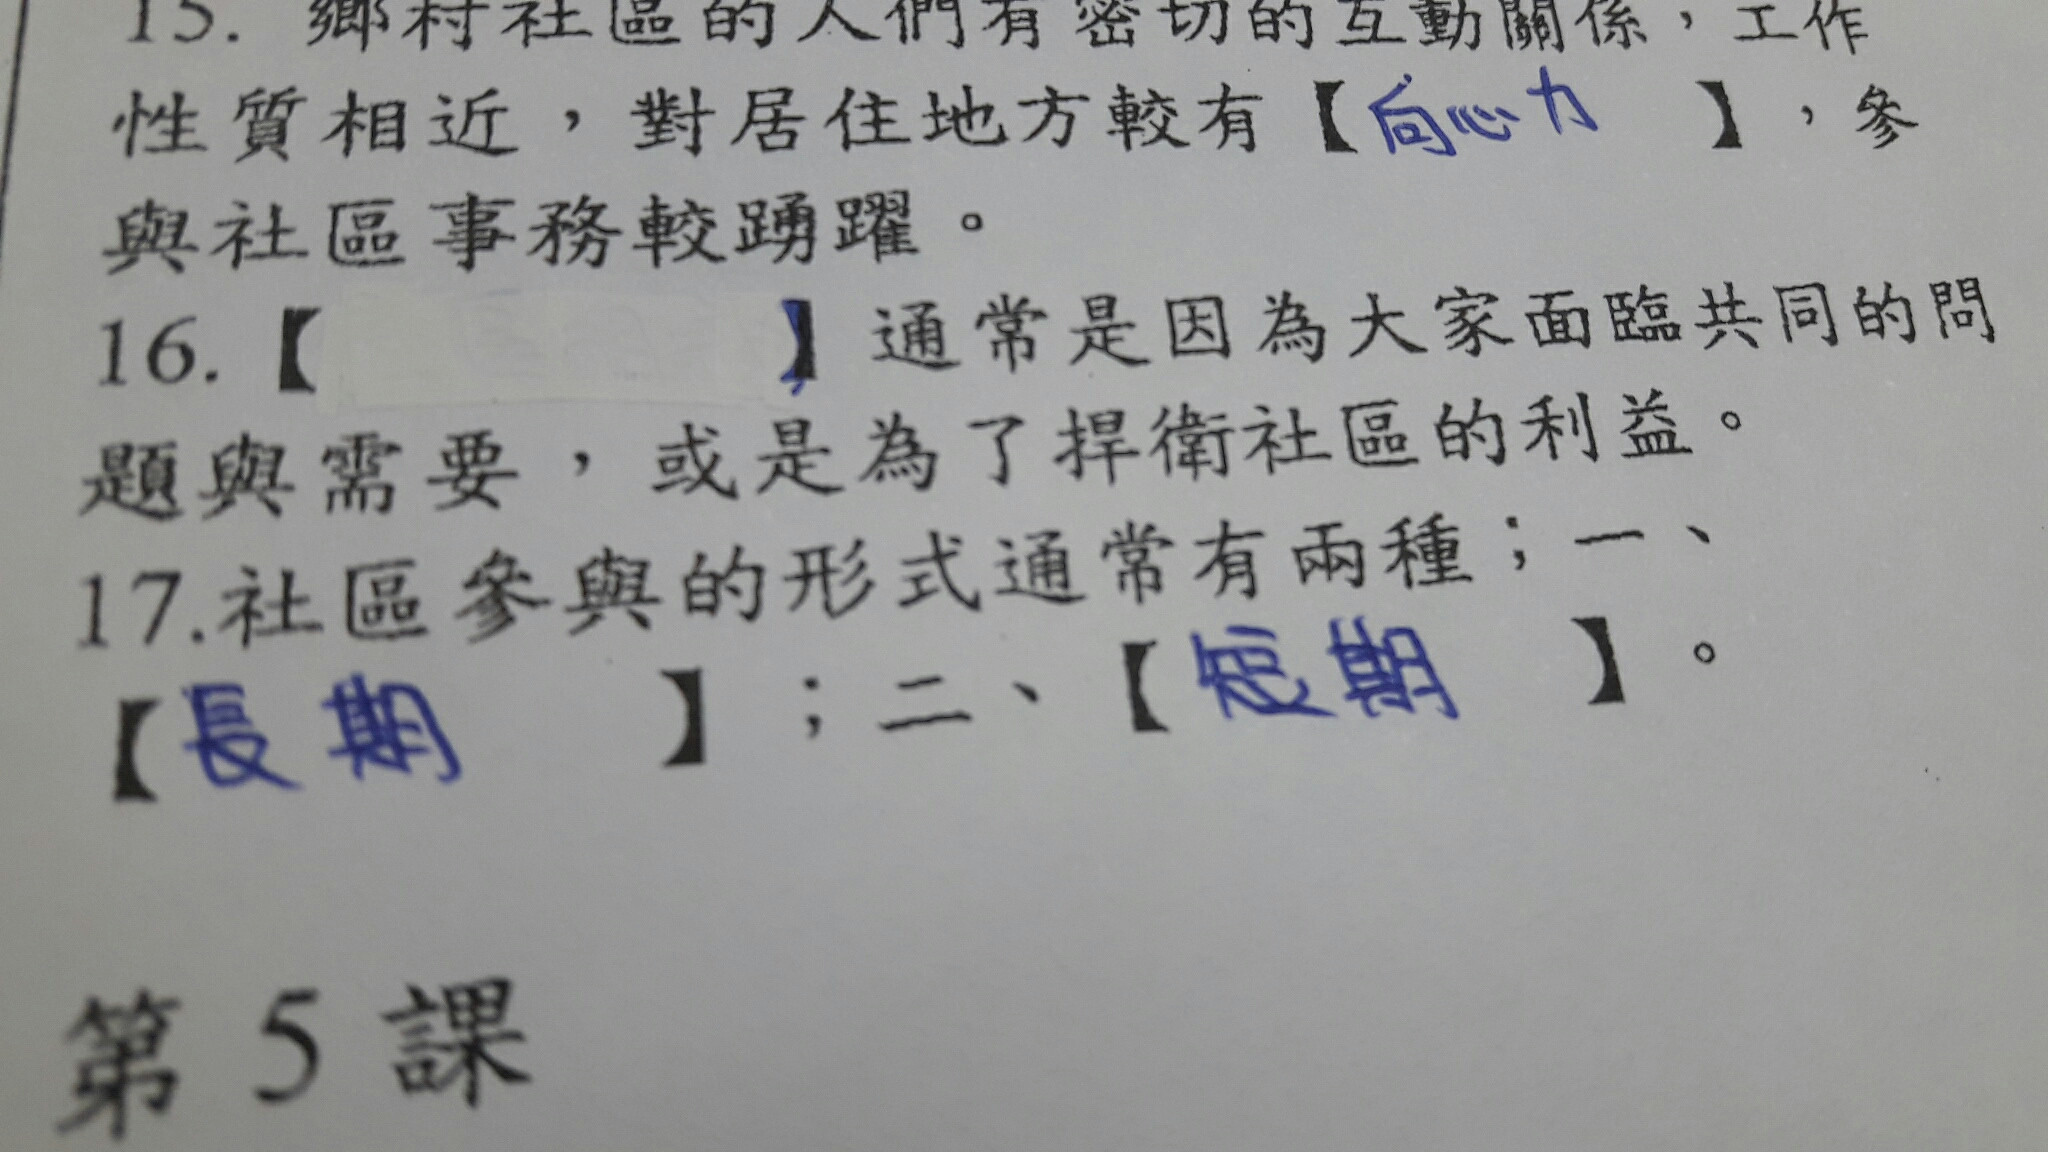 15. 鄉村社區的人們有密切的互動關係，工作
性質相近，對居住地方較有【向心力 】，參
與社區事務較踴躍。
16.【 】通常是因為大家面臨共同的問
題與需要，或是為了捍衛社區的利益。
17.社區參與的形式通常有兩種；一、
【長期 】；二、【短期 】。
第 5 課